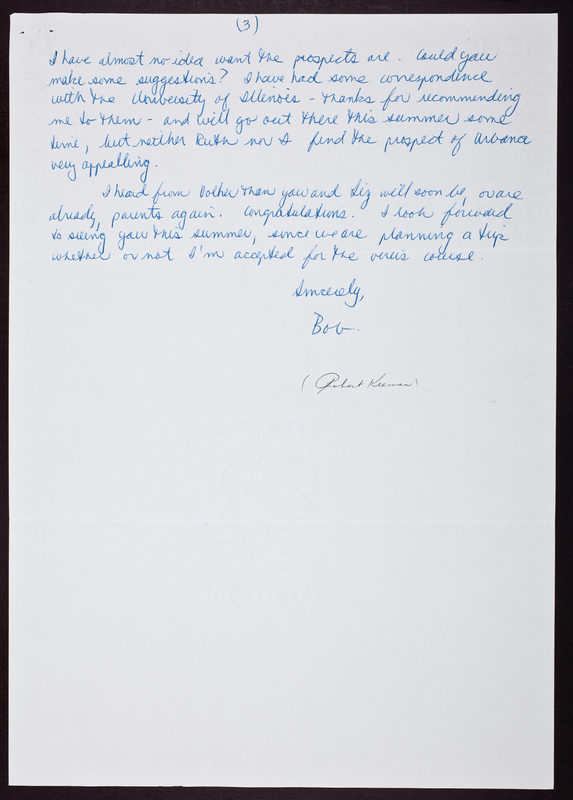 (3)
I have almost no idea want the prospects are. Could you
make some suggestions? I have had some correspondence
with the University of Illinois - thanks for recommending
me to them - and will go out there this summer some
time, but neither Ruth nor I find the prospect of Urbana
very appealling.
I heard from that you and Liz will soon be, or are
already, parents again. Congratulations. I look forward
to seeing you this summer, since we are planning a trip
whether or not I'm accepted for the virus course.
Sincerely,
Bob.
(Robert
ZURICH